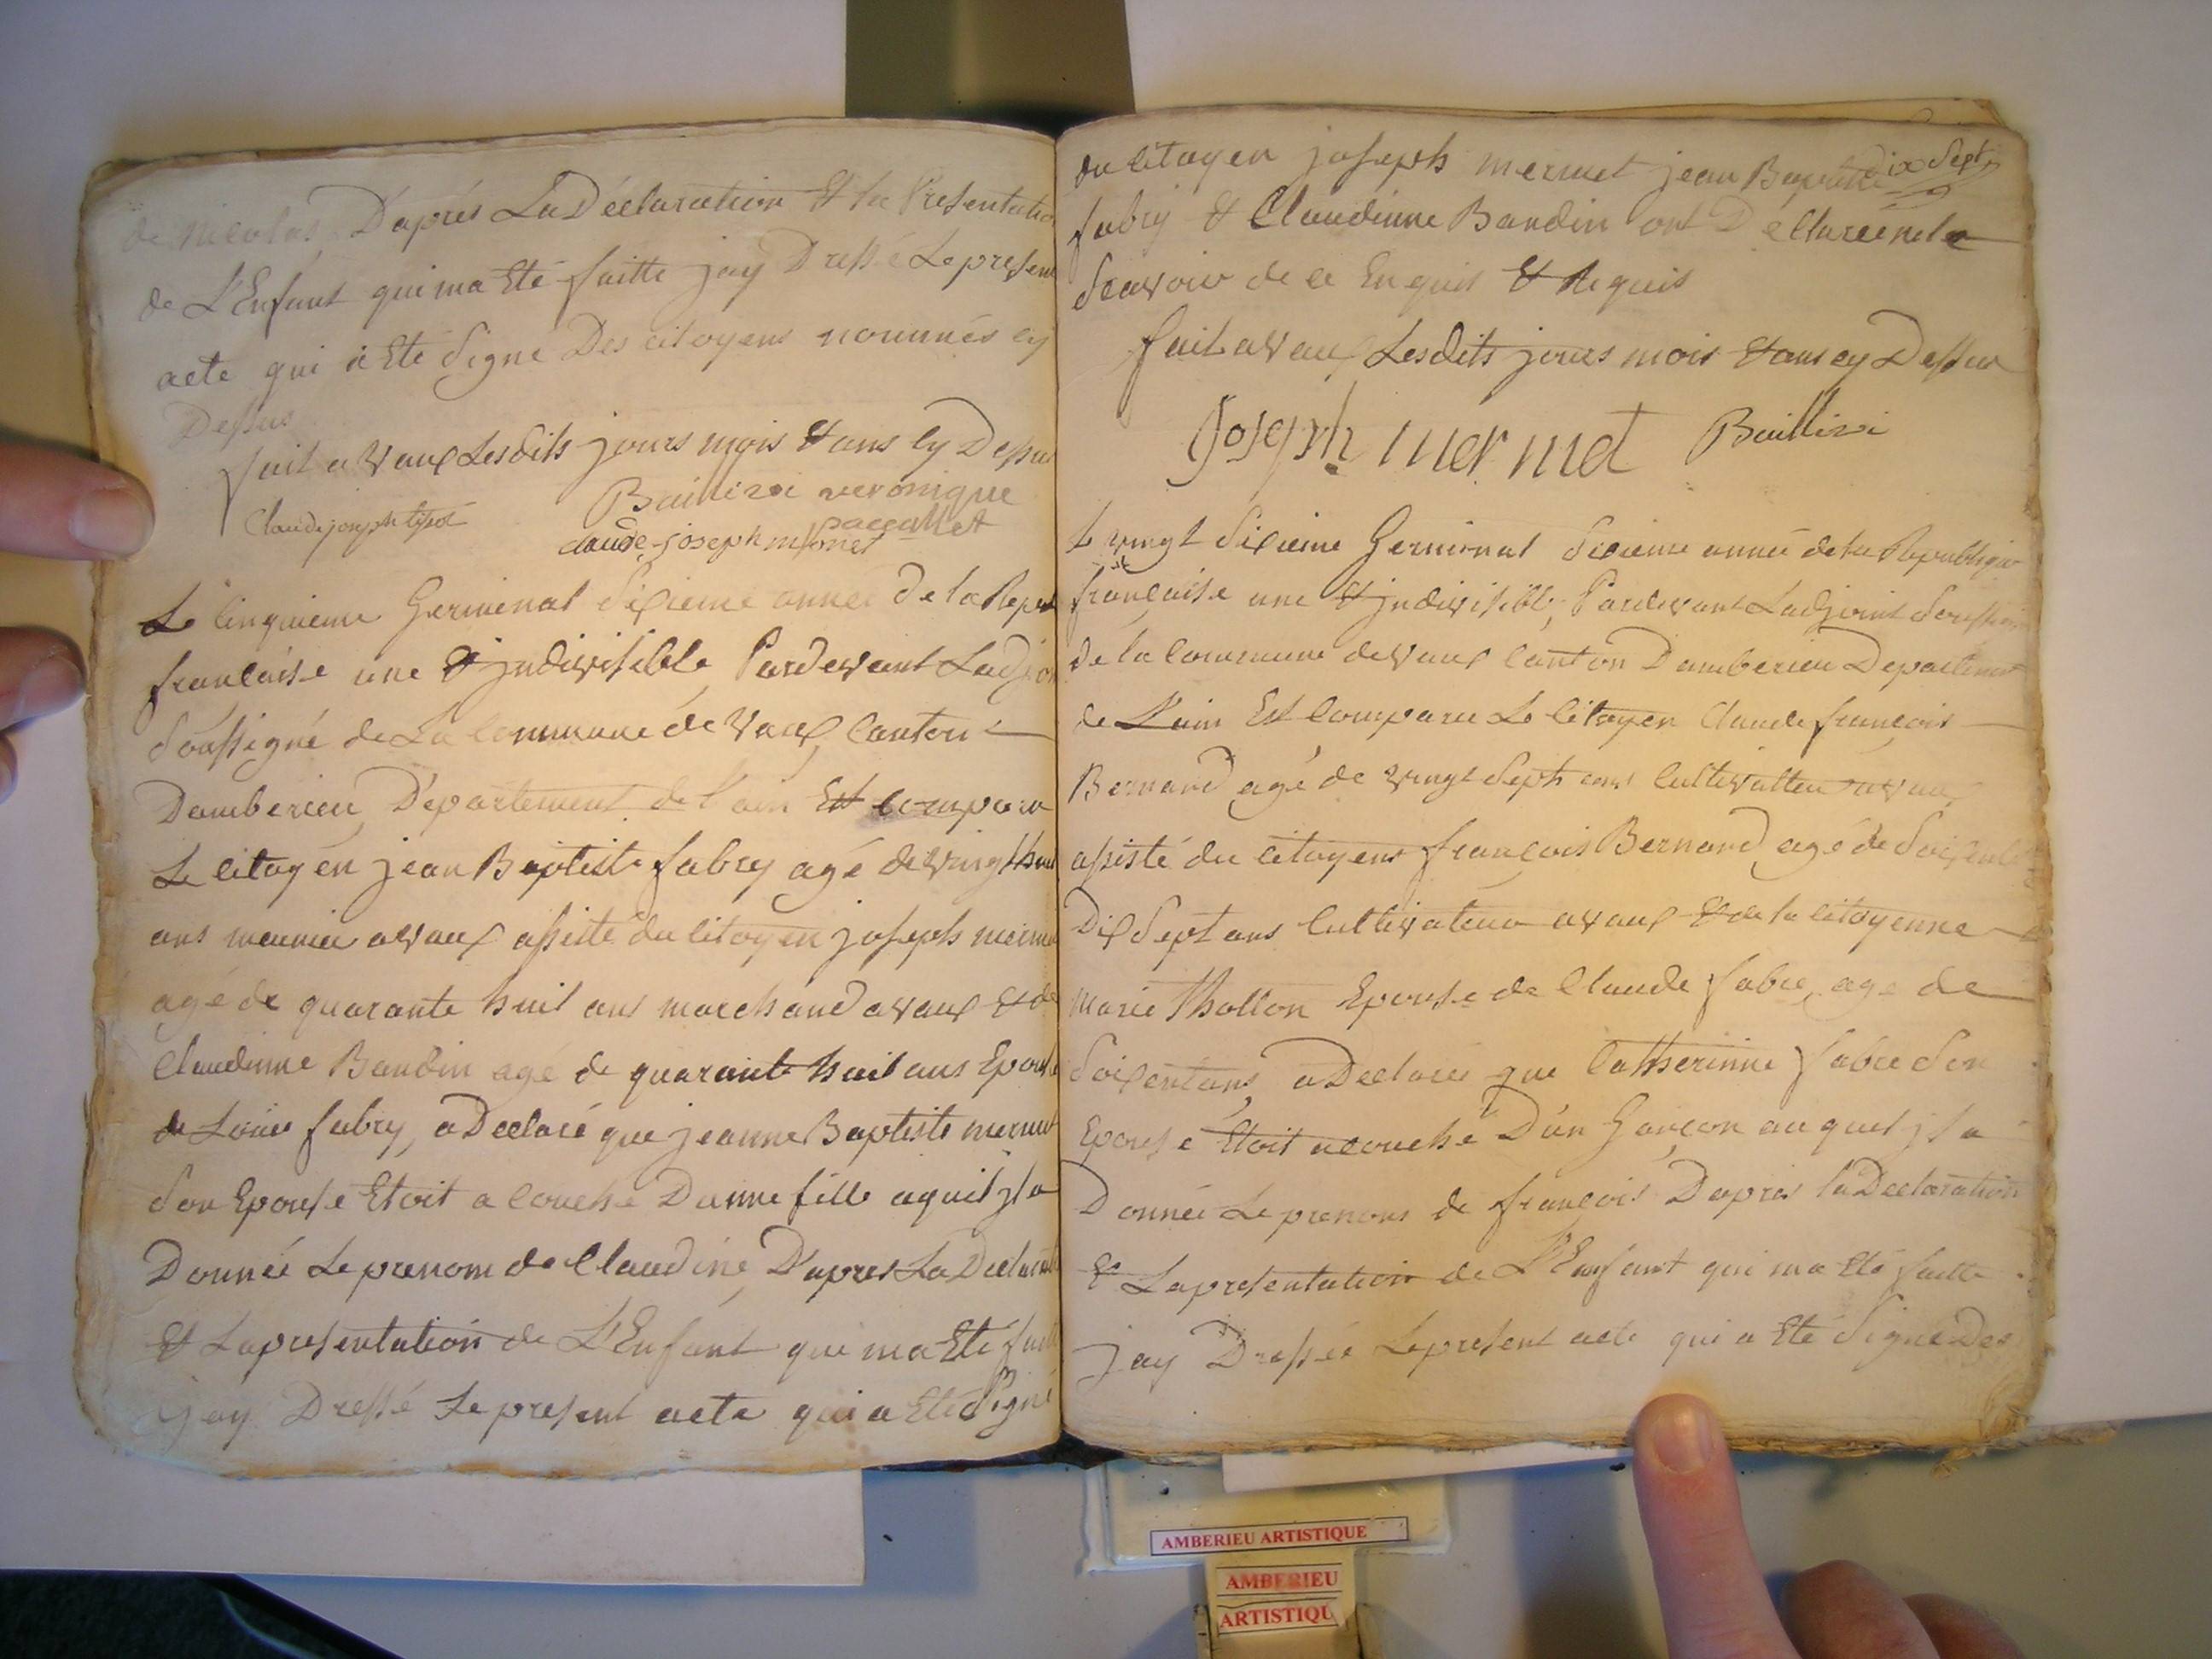 de nicolas D'aprés La Déclaration Et la Presentatio
de L'Enfant qui ma Eté faitte jay Dressé Le present
acte qui a Eté Signé Des citoyens nommés cy
Dessus
fait a Vaux Lesdits jours mois & ans Cy Dessus
Baillizi veronique
Claude joseph
paccallet
claude joseph
Le Cinquieme Germinal Sixieme année De la Repub
francaise une & jndivisible Pardevant Ladjoin
Soussigné de La Commune de Vaux Canton
Damberieu Département de l'ain Est comparu
Le Citoyén jean Baptiste fabry agé de vingt huit
ans meunier a vaux assisté du Citoyen joseph mermet
agé de quarante huit ans marchand a vaux & de
Claudinne Baudin agé de quarante huit ans Epouse
de Louis fabry, a Declaré que jeanne Baptiste mermet
Son Epouse Etoit a Couché Dunne fille a quil jl a
Donnée Le prenom de Claudine D'apres La Declarati
Et La presentation de L'Enfant qui ma Eté faitte
jay Dressé Le present acte qui a Eté Signé
du Citoyen joseph mermet jean Baptiste
dix Sept
fabry & Claudinne Baudin ont Déclarée ne le
Scavoir de ce Enquis & Requis
fait a Vaux Lesdits jours mois & ans cy Dessus
Joseph mermet Baillizi
Le vingt Sixieme Germinal Sixieme année de la Republique
française une & jndivisible, Pardevant Ladjoint Soussigné
De la Commune de Vaux Canton Damberieu Departement
de L'ain Est Comparu Le Citoyen Claude françois
Bernard agé de vingt Sept ans Cultivatteur a vaux
assisté du Citoyens françois Bernard, agé de Soixente
Dix Sept ans Cultivateur a vaux & de la Citoyenne
Marie Thollon Epouse de Claude fabre, age de
Soixent ans, a Declaré que Catherinne fabre Son
Epouse Etoit acouché D'un Garcon au quel jl a
Donnée Le prenoms de françois D'apres la Declaration
& La presentation de L'Enfant qui ma Eté faitte
jay Dressée Le present acte qui a Eté Signé Des
AMBERIEU ARTISTIQUE
AMBERIEU
ARTISTIQU